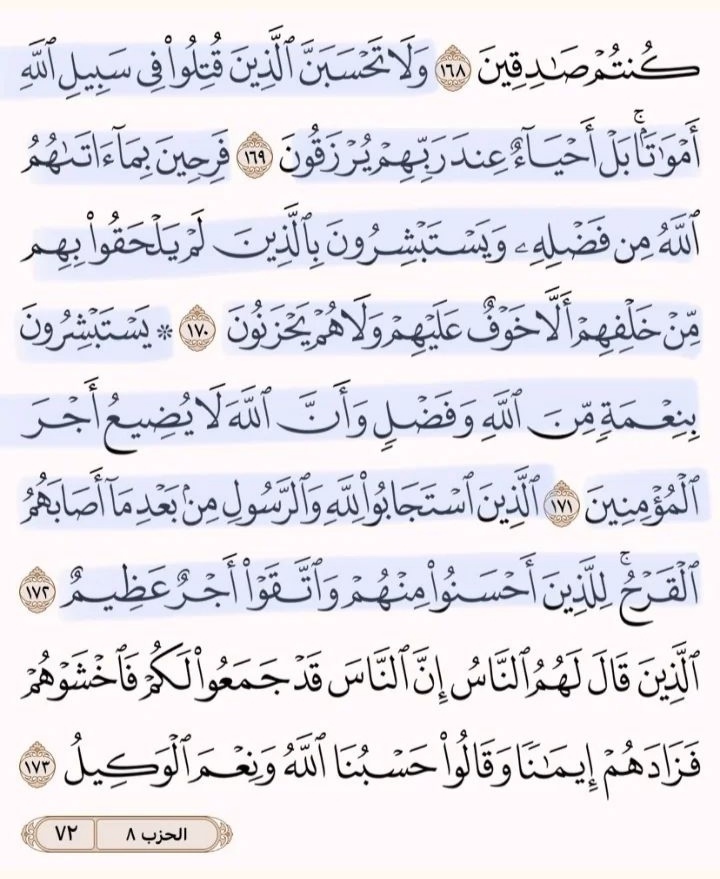 كُنتُمْ صَـٰدِقِينَ ١٦٨ وَلَا تَحْسَبَنَّ ٱلَّذِينَ قُتِلُوا۟ فِى سَبِيلِ ٱللَّهِ
أَمْوَٰتًۢا ۚ بَلْ أَحْيَآءٌ عِندَ رَبِّهِمْ يُرْزَقُونَ ١٦٩ فَرِحِينَ بِمَآ ءَاتَىٰهُمُ
ٱللَّهُ مِن فَضْلِهِۦ وَيَسْتَبْشِرُونَ بِٱلَّذِينَ لَمْ يَلْحَقُوا۟ بِهِم
مِّنْ خَلْفِهِمْ أَلَّا خَوْفٌ عَلَيْهِمْ وَلَا هُمْ يَحْزَنُونَ ١٧٠ * يَسْتَبْشِرُونَ
بِنِعْمَةٍ مِّنَ ٱللَّهِ وَفَضْلٍ وَأَنَّ ٱللَّهَ لَا يُضِيعُ أَجْرَ
ٱلْمُؤْمِنِينَ ١٧١ ٱلَّذِينَ ٱسْتَجَابُوا۟ لِلَّهِ وَٱلرَّسُولِ مِنۢ بَعْدِ مَآ أَصَابَهُمُ
ٱلْقَرْحُ ۚ لِلَّذِينَ أَحْسَنُوا۟ مِنْهُمْ وَٱتَّقَوْا۟ أَجْرٌ عَظِيمٌ ١٧٢
ٱلَّذِينَ قَالَ لَهُمُ ٱلنَّاسُ إِنَّ ٱلنَّاسَ قَدْ جَمَعُوا۟ لَكُمْ فَٱخْشَوْهُمْ
فَزَادَهُمْ إِيمَـٰنًا وَقَالُوا۟ حَسْبُنَا ٱللَّهُ وَنِعْمَ ٱلْوَكِيلُ ١٧٣
الحزب ٨ ٧٢